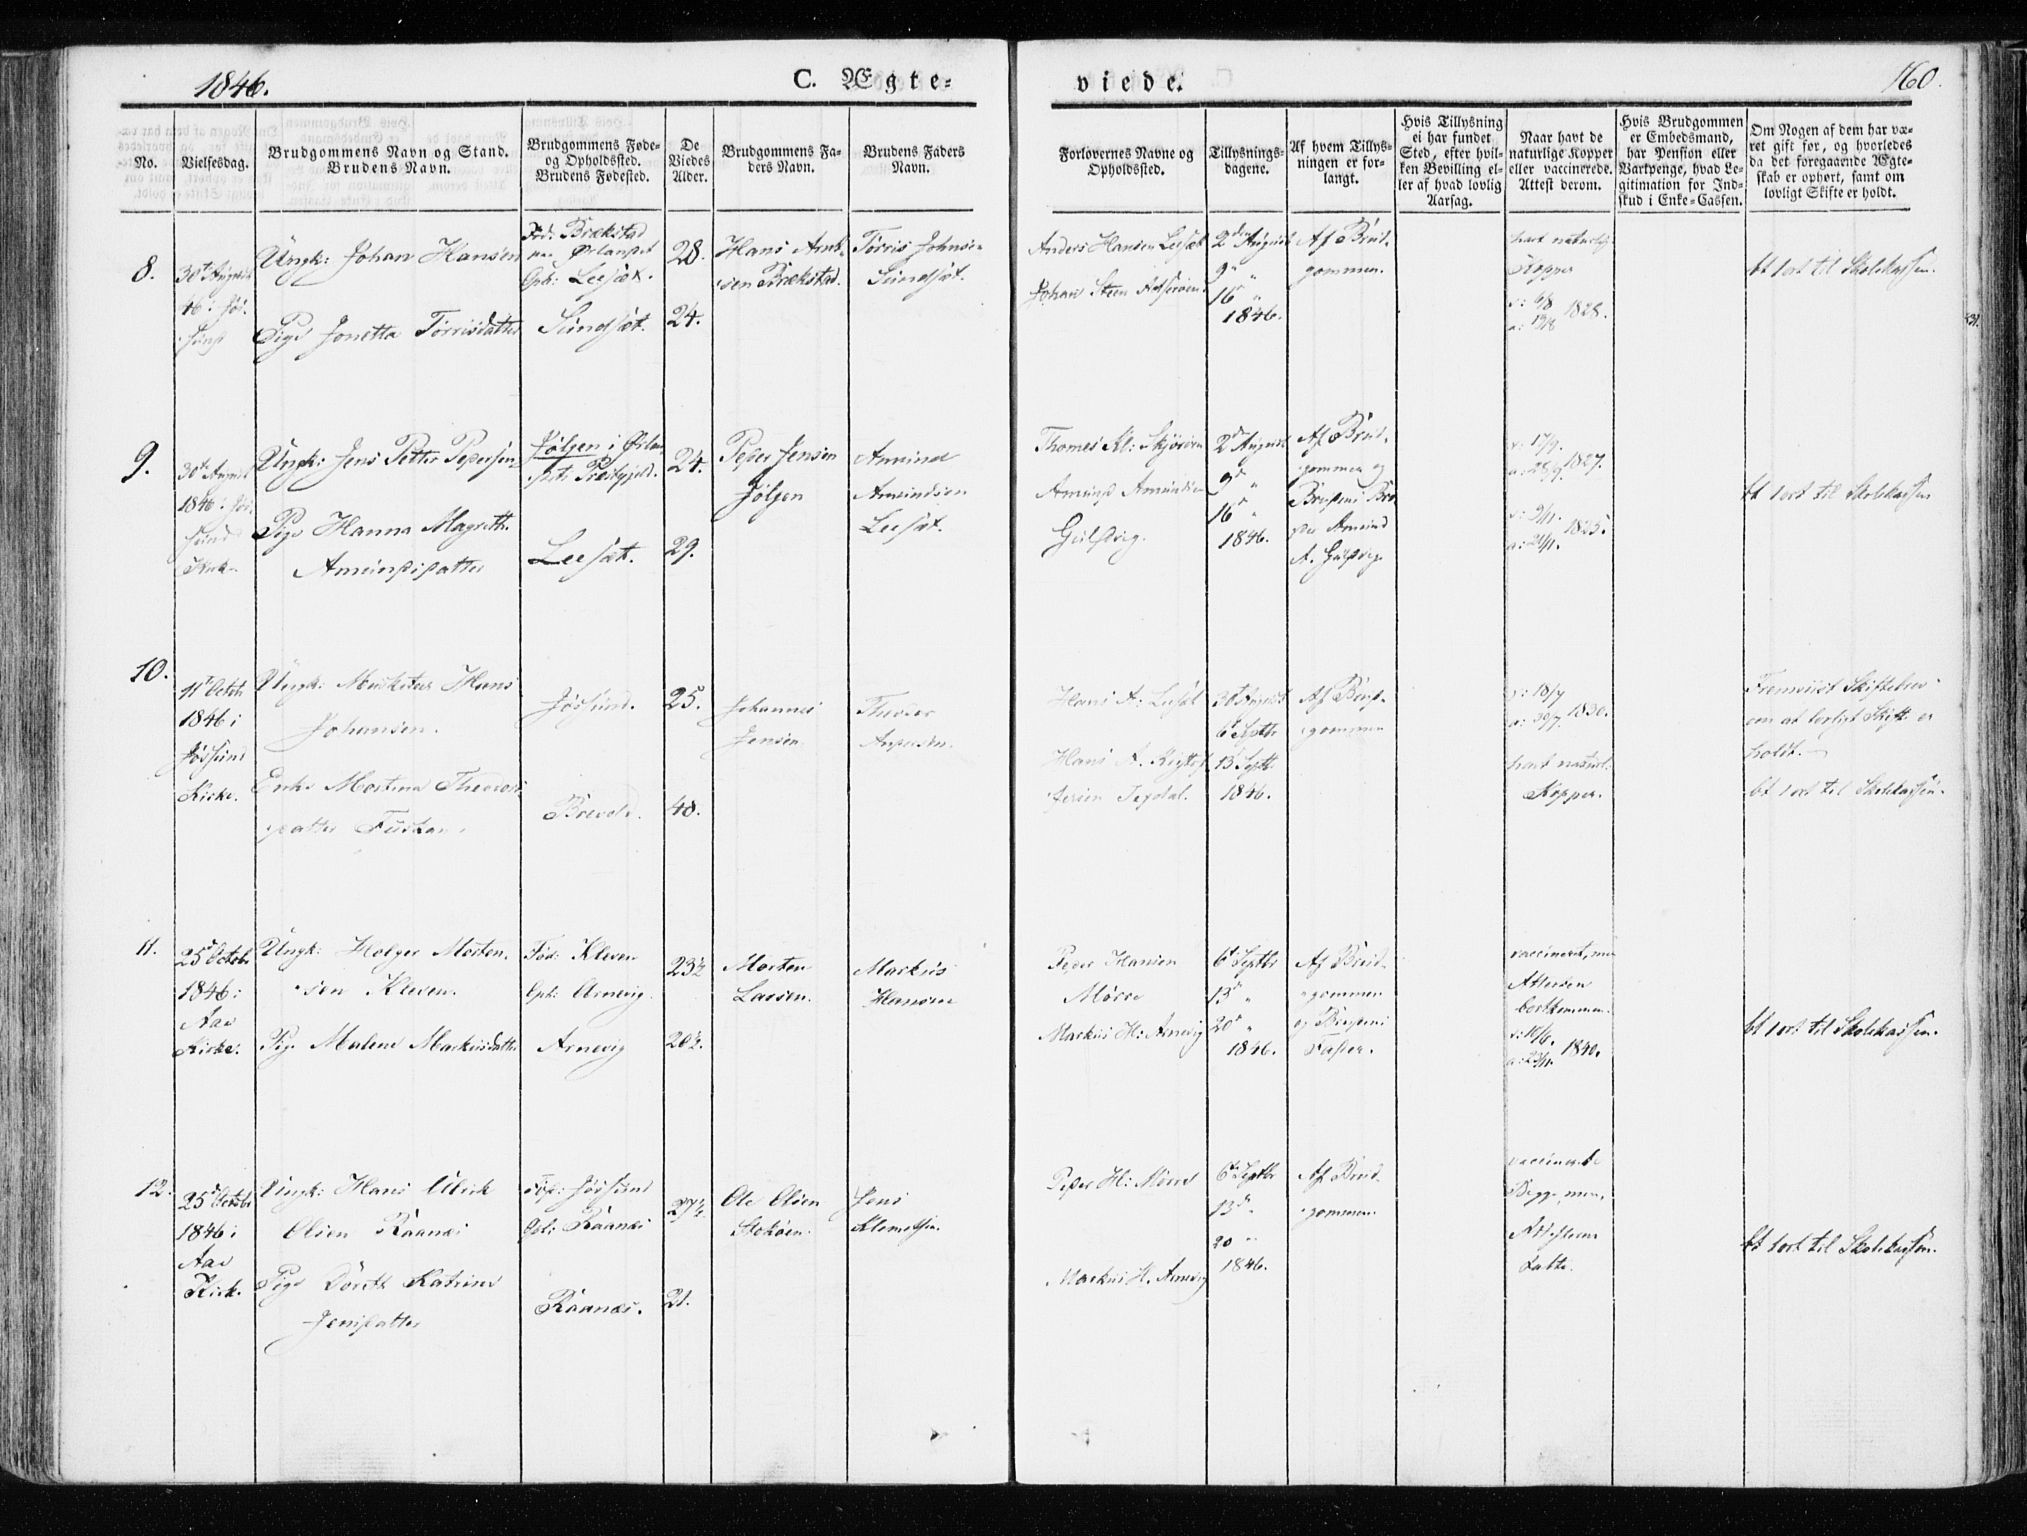 1846.
C. Ægte-
viede.
160.
No.
Vielsesdag.
Brudgommens Navn og Stand.
Brudens Navn.
Brudgommens Føde-
og Opholdssted.
Brudens Fødested.
De
Viedes
Alder.
Brudgommens Fa-
ders Navn.
Brudens Faders
Navn.
Forlovernes Navne og
Opholdssted.
Tillysnings-
dagene.
Af hvem Tillys-
ningen er for-
langt.
Hvis Tillysning
ei har fundet
Sted, efter hvil-
ken Bevilling el-
ler af hvad lovlig
Aarsag.
Naar havt de
naturlige Kopper
eller vaccinerede.
Attest derom.
Hvis Brudgommen
er Embedsmand,
har Pension eller
Vartpenge, hvad Le-
gitimation for Ind-
skud i Enke-Cassen.
Om Nogen af dem har væ-
ret gift før, og hvorledes
da det foregaaende Ægte-
skab er ophørt, samt om
lovligt Skifte er holdt.
8.
30te August
46 i Jøs-
sund
Ungk: Johan Hansen
Pige Jonetta Torrisdatter
Fød: Brækstad
Ørlandet
Oph: Leesæt.
Sundsæt.
28.
24.
Hans Arnt-
sen Brækstad.
Torris Johnsen
Sundsæt.
Anders Hansen Leesæt
Johan Steen
2den August
9de "
16de "
1846.
Af Brud-
gommen.
havt naturlig
Kopper
v: 6/8
a: 13/8 1828.
bt 1 ort til Skolekassen.
9.
30te August
1846 i Jøs-
sund
Kirk-
Ungk: Jens Petter Pedersen
Pige Hanna Magreth
Amundsdatter
Jølgen i Ørlan-
dets Præstegjeld.
Leesæt.
24.
29.
Peder Jensen
Jølgen
Amund
Amundsen
Leesæt.
Thomes Kl: Skjøren
Amund Amundsen
Gulsvig.
2de August
9de "
16de "
1846.
Af Brud-
gommen og
Brudens Bro-
der Amund
A. Gulsvig.
v: 17/9.
a: 28/9. 1827.
v: 9/11.
a: 21/11. 1825.
bt 1 ort til Skolekassen
10.
11te Octobr
1846 i
Jøssund
Kirke.
Ungk: Musketeer Hans
Johansen.
Enke Martina Theodor-
datter
Jøssund.
Brevold.
25.
40.
Johannes
Jensen.
Theodor
Andersen.
Hans A: Leesæt
Hans A.
Jensen Tegdal.
30te August
6te Septbr
13de Septbr
1846.
Af Brud-
gommen
v: 18/7
a: 30/7. 1830.
havt naturl.
Kopper.
Fremviist Skiftebrev
om at lovligt Skifte er
holdt.
bt 1 ort til Skolekassen.
11.
25de Octobr
1846 i
Aae
Kirke.
Ungk: Holger Morten-
sen Kleven.
Pige Malene Markusdatter
Fød: Kleven
Oph: Arnevig.
Arnevig
23½
20½.
Morten
Larsen.
Markus
Hansen
Peder Hansen
Mørre
Markus H: Arnevig
6te Septbr
13de "
20de "
1846.
Af Brud-
gommen
og Brudens
Fader.
vaccineret, men
Attesten
bortkommen.
v: 16/6.
a: 23/11. 1840.
bt 1 ort til Skolekassen.
12.
25de Octobr
1846 i
Aae
Kirk.
Ungk: Hans Ulrick
Olsen Raanæs
Pige Doreth Katrine
Jensdatter
Fød: Jøssund
Oph: Raanæs
Raanæs.
27½
21.
Ole Olsen
Stokøen.
Jens
Klemetsen.
Peder H: Mørre
Markus H. Arnevig
6te Septbr
13de "
20 "
1846.
Af Brud-
gommen.
vaccinerede
Begge, men
Attesterne
tabte.
bt 1 ort til Skolekassen.